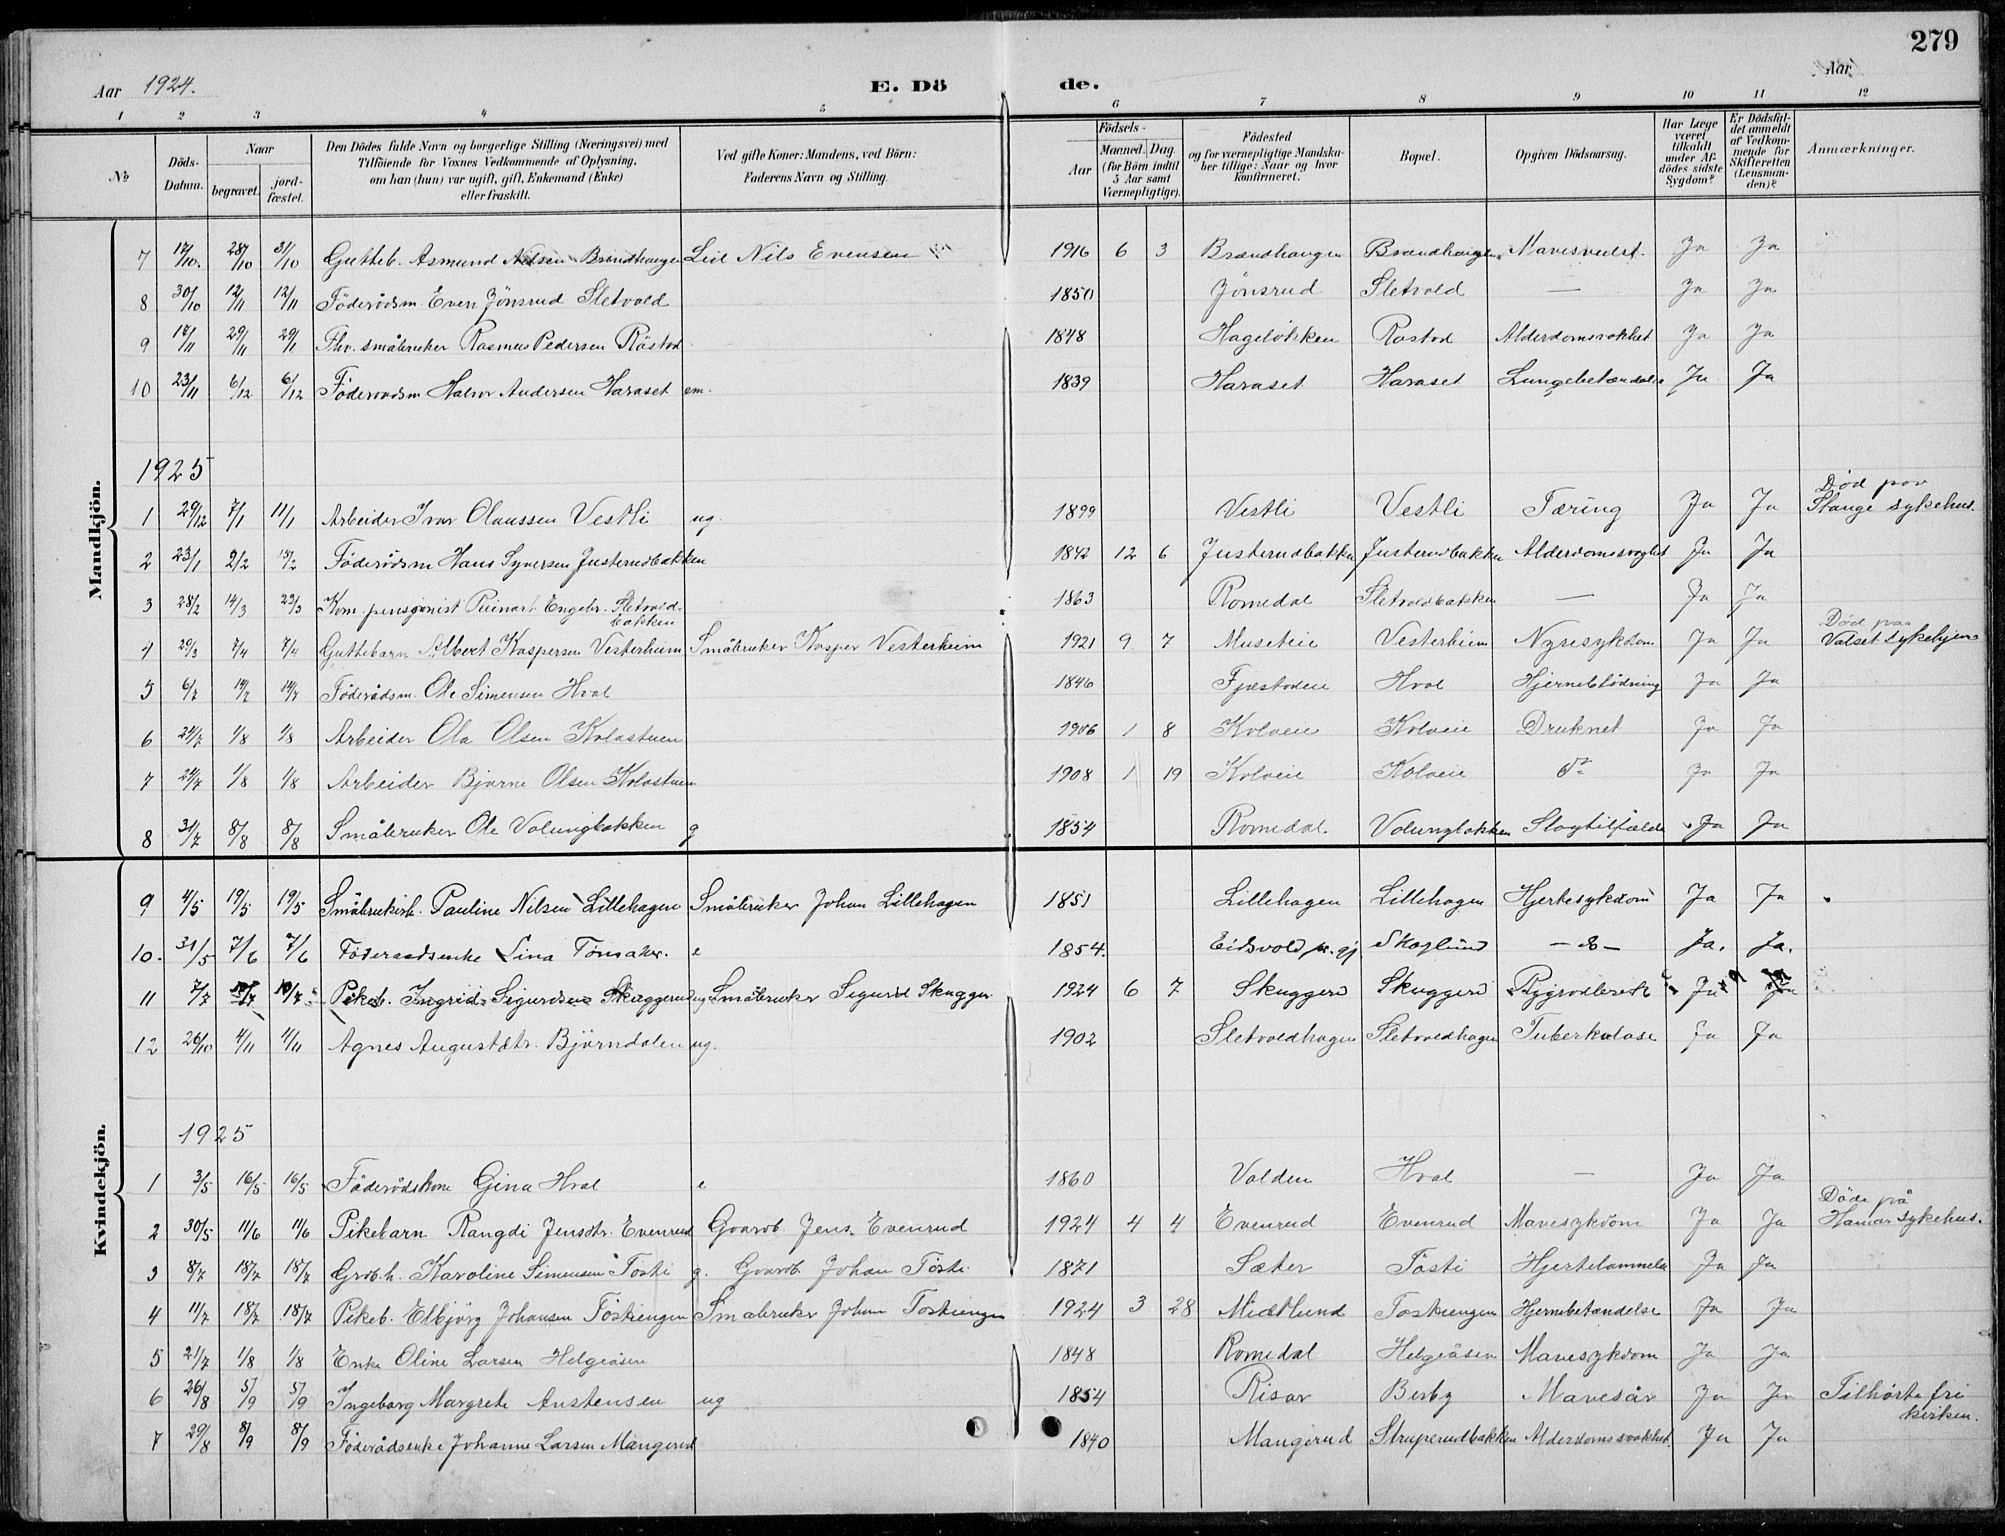 279
Aar 1924. E. Dö de. Aar
1 2 3 4 5 6 7 8 9 10 11 12
№ Döds-Datum. Naar begravet. jord-fæstet. Den Dödes fulde Navn og borgerlige Stilling (Næringsvei) med Tilföiende for Voxnes Vedkommende af Oplysning, om han (hun) var ugift, gift, Enkemand (Enke) eller fraskilt. Ved gifte Koner: Mandens, ved Börn: Faderens Navn og Stilling. Födsels- Aar Maaned. Dag (for Börn indtil 5 Aar samt Værnepligtige). Födested og for værnepligtige Mandskaber tillige: Naar og hvor konfirmeret. Bopæl. Opgiven Dödsaarsag. Har Læge været tilkaldt under Afdödes sidste Sygdom? Er Dödsfaldet anmeldt af Vedkommende for Skifteretten (Lensmanden)? Anmærkninger.
Mandkjön.
7 17/10. 28/10 31/10 Gutteb. Asmund Nilsen Brændhaugen Leil Nils Evensen 1916 6 3 Brændhaugen Brændhaugen Ja Ja
8 30/10 12/11 12/11 Föderådsm. Even Jönsrud Sletvold 1850 Jönsrud Sletvold — Ja Ja
9 17/11 29/11 29/11 Fhv. småbruker Rasmus Pedersen Råstad 1848 Hagelökken Rastad Alderdomsvakhet Ja Ja
10 23/11 6/12 6/12 Föderaadsm Halvor Andersen Haraset em. 1839 Haraset Haraset Lungebetændelse Ja Ja
1925
1 29/12 7/1 11/1 Arbeider Ivar Olaussen Vestli ug. 1899 Vestli Vestli Tæring Ja Ja Död paa Stange sykehus.
2 23/1 2/2 15/2 Föderådsm Hans Syversen Justerudbakken 1842 12 6 Justerudbakken Justerudbakken Ja Ja
3 28/2 14/3 23/3 Kom. pensjonist Engebr. Sletvoldbakken 1863 Romedal Sletvoldbakken — Ja Ja
4 29/3 7/4 7/4 Guttebarn Albert Kaspersen Vesterheim Småbruker Kasper Vesterheim 1921 9 7 Museteie Vesterheim Nyresykdom Ja Ja Död paa Valset sykehjem
5 6/7 14/7 14/7 Föderådsm. Ole Simensen Hval 1846 Hval Hjerneblödning Ja Ja
6 24/7 1/8 1/8 Arbeider Ola Olsen Kolastuen 1906 1 8 Kolaeie Kolaeie Druknet Ja Ja
7 24/7 1/8 1/8 Arbeider Bjarne Olsen Kolastuen 1908 1 19 Kolaeie Kolaeie do Ja Ja
8 31/7 8/8 8/8 Småbruker Ole Volungbakken g 1854 Romedal Volungbakken Slagtilfælde Ja Ja
Kvindekjön.
9 4/5 19/5 19/5 Småbrukersk. Pauline Nilsen Lillehagen Småbruker Johan Lillehagen 1851 Lillehagen Lillehagen Hjertesykdom Ja Ja
10. 31/5 7/6 7/6 Föderaadsenke Lina Tömaker. e 1854. Eidsvold Skoglund — do — Ja. Ja.
11 7/7 10/7 10/7 Pikeb. Ingrid Sigurdsen Skuggerud ug Småbruker Sigurd Skugger 1924 6 7 Skuggerd Skuggerd Ja Ja
12 26/10 4/11 4/11 Agnes Augustdtr. Björndalen ug. 1902 Sletvoldhagen Sletvoldhagen Tuberkulose Ja Ja
1925
1 3/5 16/5 16/5 Föderådskone Gina Hval e 1860 Valden Hval — Ja Ja
2 30/5 11/6 11/6 Pikebarn Rangdi Jensdtr. Evenrud Gaardb. Jens Evenrud 1924 4 4 Evenrud Evenrud Mavesykdom Ja Ja Döde på Hamar sykehus.
3 8/7 18/7 18/7 Grdb.h. Karoline Simensen Tösti g. Gaardb. Johan Tösti 1871 Sæter Tösti Hjertelammelse Ja Ja
4 11/7 18/7 18/7 Pikeb. Elbjörg Johansen Töstiengen Småbruker Johan Töstiengen 1924 3 28 Midtlund Töstiengen Hjernebetændelse Ja Ja
5 21/7 1/8 1/8 Enke Oline Larsen Helgeåsen 1848 Romedal Helgeåsen Mavesykdom Ja Ja
6 26/8 5/9 5/9 Ingeborg Margrete Austensen ug 1854 Risør Berby Mavesår Ja Ja Tilhörte fri kirken.
7 29/8 8/9 8/9 Föderådsenke Johanne Larsen Mangerud 1840 Mangerud Struperudbakken Alderdomssvakhet. Ja Ja